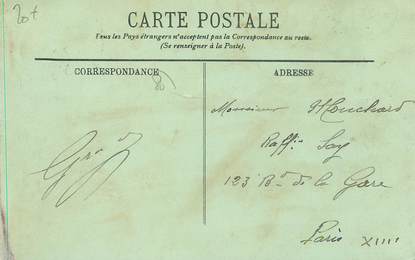 20+
CARTE POSTALE
Tous les Pays étrangers n'acceptent pas la Correspondance au recto.
(Se renseigner à la Poste).
CORRESPONDANCE
ADRESSE
Monsieur Mouchard
Raffie Say
123 Bd de la Gare
Paris XIII